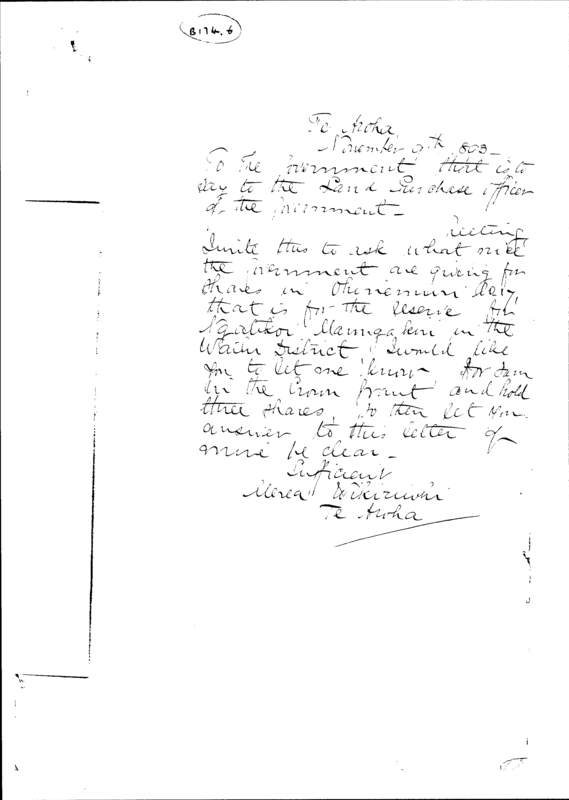 B174.6
Te Aroha
November 9th
To the Government that is to
say to the Land Purchase officer
of the Government -
Greeting
I write this to ask what price
the Government are giving for
shares in Ohinemuri
that is for the reserve for
in the
Waihi District I would like
you to let me know for I am
in the Crown Grant and hold
three shares, so then let your
answer to this letter of
mine be clear -
Sufficient
Merea Wikiriwhi
Te Aroha